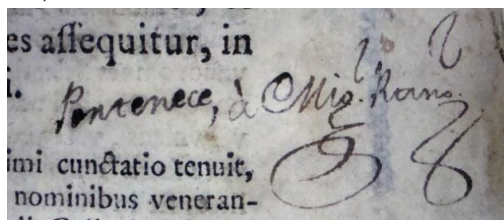 es aſſequitur, in
i.
Pertenece, à Mig.
imi cunctatio tenuit,
nominibus veneran-